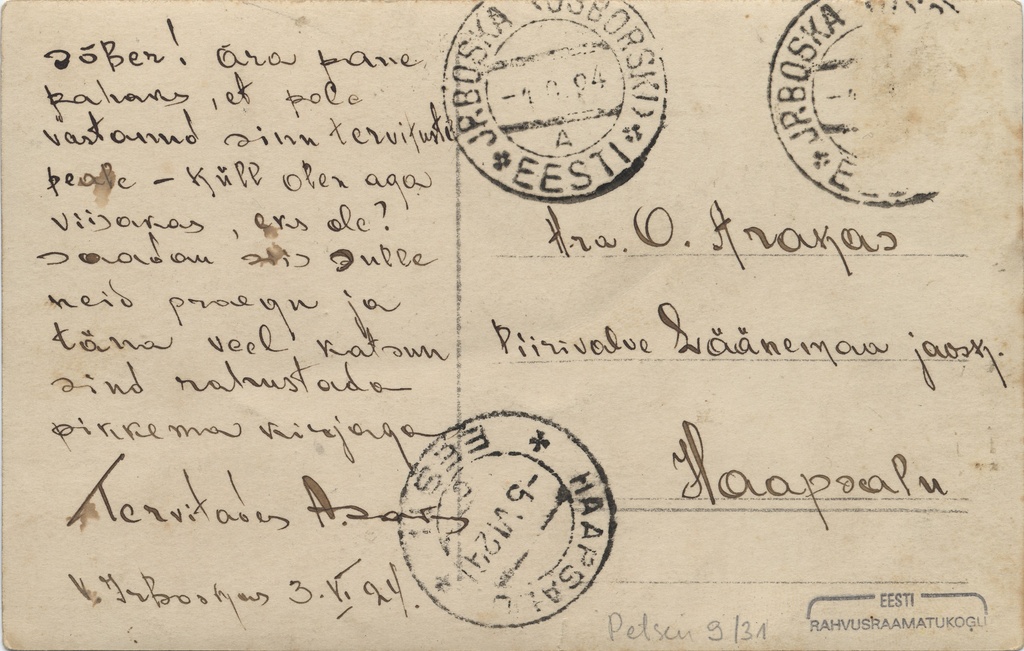 sõber! Ära pane
pahaks, et pole
vastanud sinu tervituste
peale – Küll olen aga
viisakas, eks ole?
saadan siis sulle
neid praegu ja
täna veel katsun
sind rahustada
pikkema kirjaga
Tervitades
V. Irboskas 3. VI 24.
JRBOSKA (ISBORSK)
A
EESTI
JRBOSKA
Hra. O. Arakas
Piirivalve Läänemaa jaosk.
Haapsalu
HAAPSALU
EESTI
-5 VI 24
Petseri 9/31
EESTI
RAHVUSRAAMATUKOGU